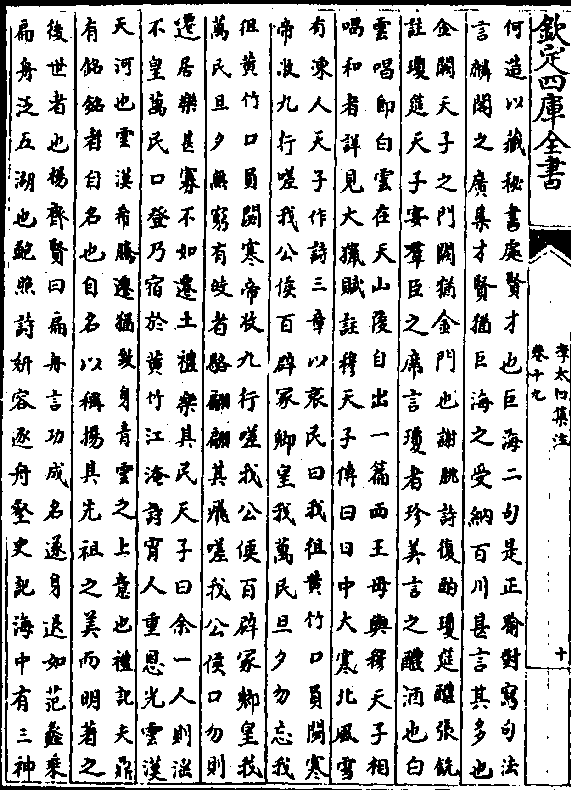 欽定四庫全書
李太白集注
卷十九
十
何造以藏秘書處賢才也巨海二句是正喻對寫句法
言麟閣之廣集才賢猶巨海之受納百川甚言其多也
金闕天子之門闕猶金門也謝朓詩復酌瓊筵醴張銑
註瓊筵天子宴羣臣之席言瓊者珍美言之醴酒也白
雲唱即白雲在天山陵自出一篇西王母與穆天子相
唱和者詳見大獵賦註穆天子傳曰日中大寒北風雪
有凍人天子作詩三章以哀民曰我徂黄竹口員閟寒
帝收九行嗟我公侯百辟冢卿皇我萬民旦夕勿忘我
徂黄竹口員閟寒帝收九行嗟我公侯百辟冢卿皇我
萬民旦夕無窮有皎者鵅翩翩其飛嗟我公侯口勿則
遷居樂甚寡不如遷土禮樂其民天子曰余一人則淫
不皇萬民口登乃宿於黄竹江淹詩宵人重恩光雲漢
天河也雲漢希騰遷猶致身青雲之上意也禮記夫鼎
有銘銘者自名也自名以稱揚其先祖之美而明著之
後世者也楊齊賢曰扁舟言功成名遂身退如范蠡乗
扁舟泛五湖也鮑照詩妍容逐舟壑史記海中有三神